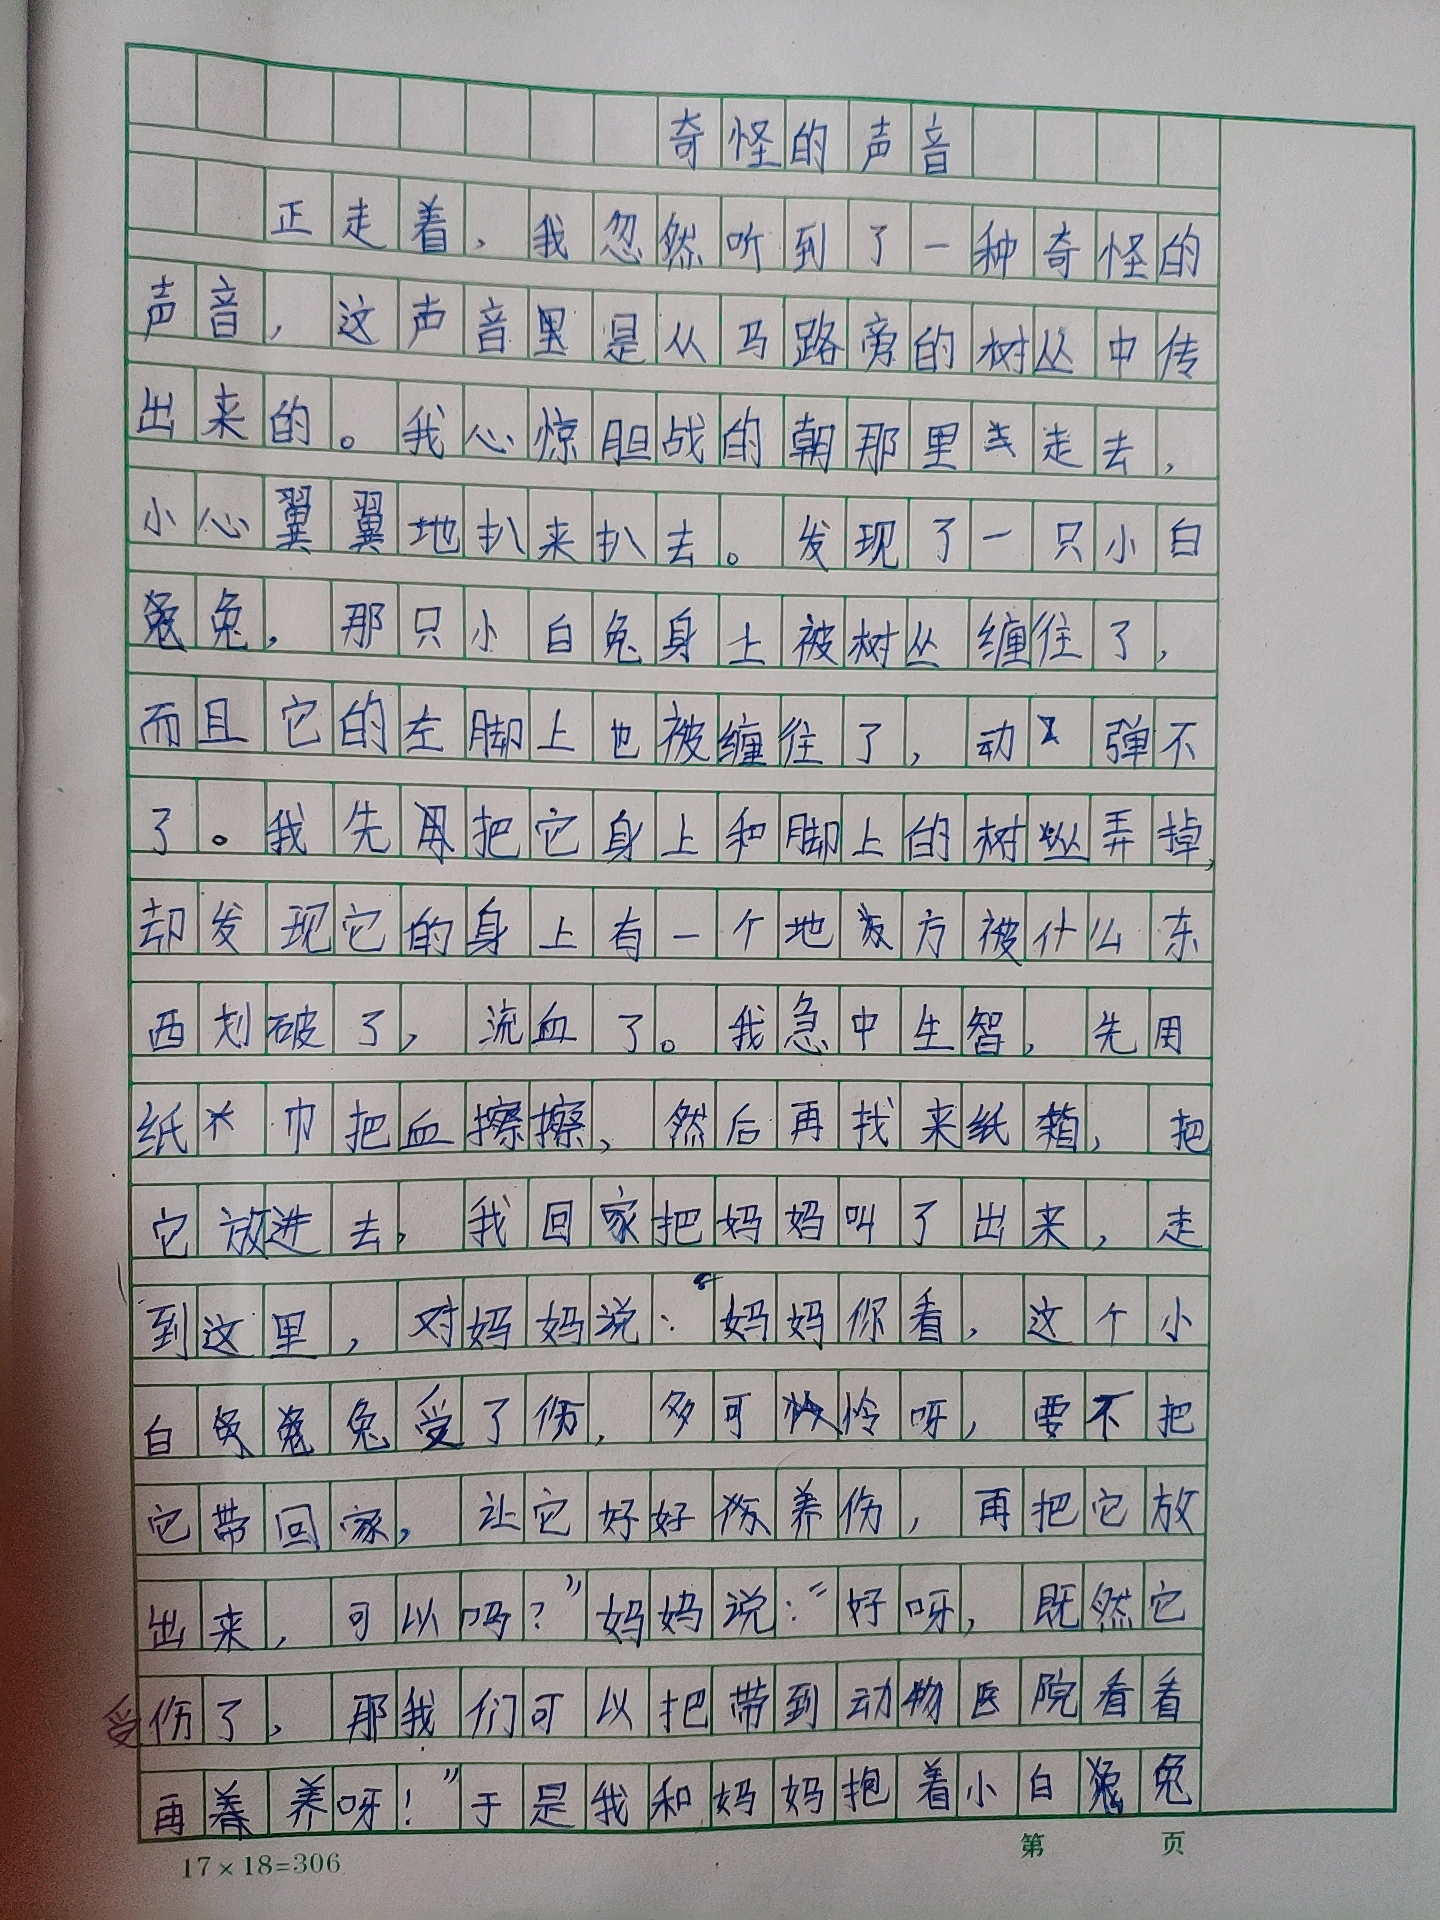 奇怪的声音
正走着，我忽然听到了一种奇怪的
声音，这声音里是从马路旁的树丛中传
出来的。我心惊胆战的朝那里走去，
小心翼翼地扒来扒去。发现了一只小白
兔，那只小白兔身上被树丛缠住了，
而且它的左脚上也被缠住了，动弹不
了。我先把它身上和脚上的树丛弄掉，
却发现它的身上有一个地方被什么东
西划破了，流血了。我急中生智，先用
纸巾把血擦擦，然后再找来纸箱，把
它放进去，我回家把妈妈叫了出来，走
到这里，对妈妈说：“妈妈你看，这个小
白兔受了伤，多可怜呀，要不把
它带回家，让它好好养伤，再把它放
出来，可以吗？”妈妈说：“好呀，既然它
受伤了，那我们可以把带到动物医院看看
再养养呀！”于是我和妈妈抱着小白兔
17×18=306
第 页